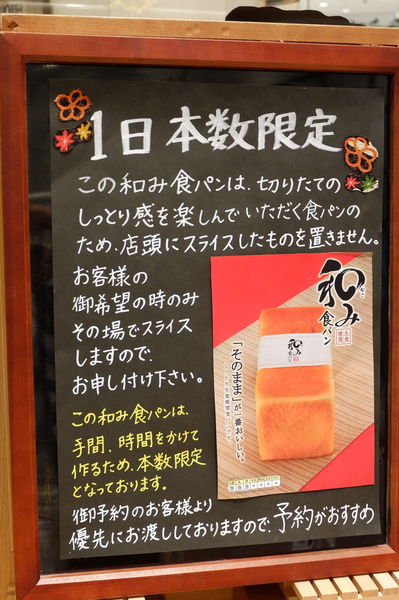 1日本数限定
この和み食パンは、切りたての
しっとり感を楽しんでいただく食パンの
ため、店頭にスライスしたものを置きません。
お客様の
御希望の時のみ
その場でスライス
しますので、
お申し付け下さい。
この和み食パンは、
手間、時間をかけて
作るため、本数限定
となっております。
御予約のお客様より
優先にお渡ししておりますので、予約がおすすめ
和み
食パン
「そのまま」が一番おいしい。